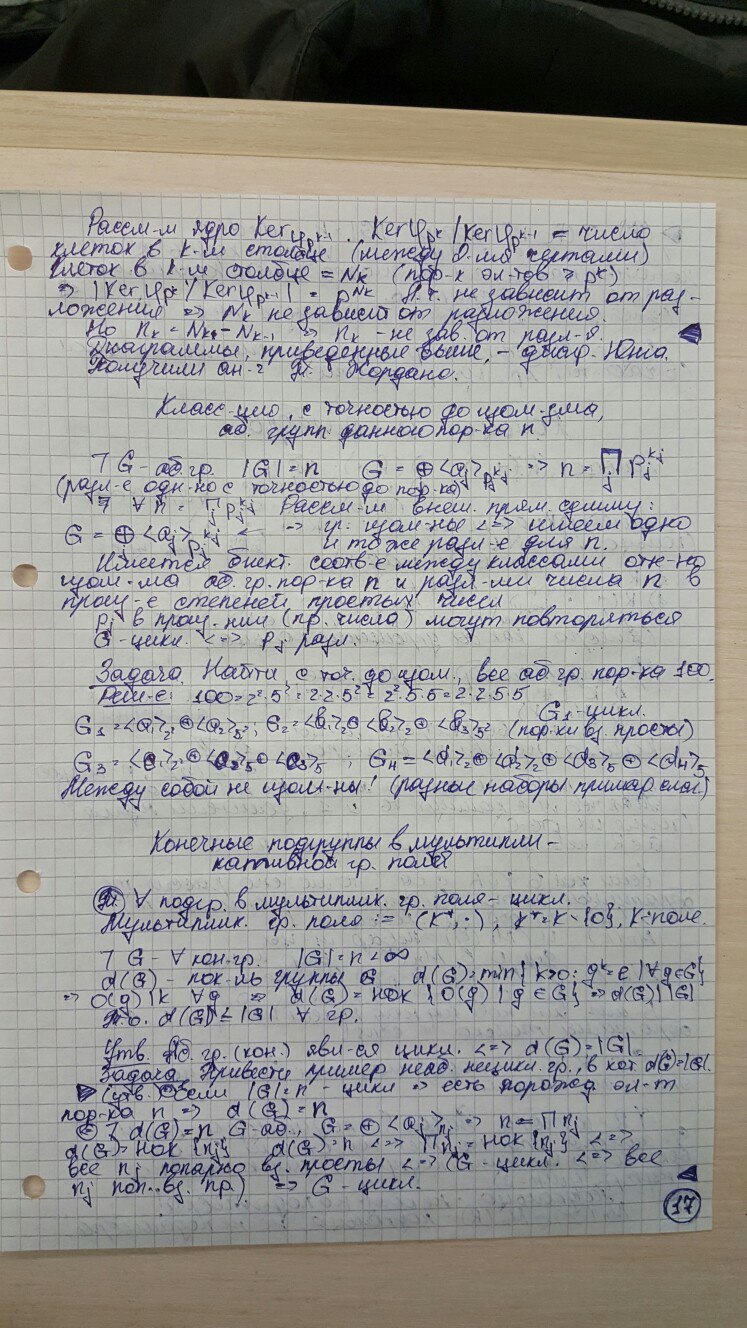 Рассм-м ядро Ker φ_{p^{k-1}}. Ker φ_{p^k} / Ker φ_{p^{k-1}} = число
клеток в k-м столбце (между чертами)
клеток в k-м столбце = N_k (пор-к эл-тов ≥ p^k)
⇒ |Ker φ_{p^k} / Ker φ_{p^{k-1}}| = p^{N_k} не зависит от раз-
ложения ⇒ N_k не зависит от разложения.
Но n_k = N_k - N_{k-1} ⇒ n_k - не зав. от разл-я.
Диаграммы, приведенные выше, - диагр. Юнга.
Получили ан-г Т. Жордана.
Класс-ция, с точностью до изом-зма,
аб. групп данного пор-ка n.
] G - аб. гр. |G| = n G = ⊕<a_j>_{p_j^{k_j}} ⇒ n = ∏_j p_j^{k_j}
(разл-е одн-но с точностью до пор-ка)
] ∀ n = ∏_j p_j^{k_j} Рассм-м внеш. прям. сумму:
G = ⊕<a_j>_{p_j^{k_j}} ⇒ гр. изом-ны <=> имеем одно
и то же разл-е для n.
Имеется биект. соотв-е между классами отн-но
изом-зма аб. гр. пор-ка n и разл-ми числа n в
произ-е степеней простых чисел
p_j в произ-нии (пр. числа) могут повторяться
G - цикл. <=> p_j разл.
Задача. Найти, с точ. до изом., все аб. гр. пор-ка 100.
Реш-е: 100 = 2²·5² = 2·2·5² = 2²·5·5 = 2·2·5·5
G₁ - цикл.
G₁ = <a₁>_{2²} ⊕ <a₂>_{5²}; G₂ = <b₁>₂ ⊕ <b₂>₂ ⊕ <b₃>_{5²} (пор-ки вз. просты)
G₃ = <c₁>_{2²} ⊕ <c₂>₅ ⊕ <c₃>₅; G₄ = <d₁>₂ ⊕ <d₂>₂ ⊕ <d₃>₅ ⊕ <d₄>₅
Между собой не изом-ны! (разные наборы примар. слаг)
Конечные подгруппы в мультипли-
кативной гр. поля
Т. ∀ подгр. в мультиплик. гр. поля - цикл.
Мультиплик. гр. поля := (K*, ·), K* = K \ {0}, K - поле.
] G - ∀ кон. гр. |G| = n < ∞
d(G) - пок-ль группы G d(G) = min{k>0: g^k = e | ∀g∈G}
⇒ O(g) | k ∀g ⇒ d(G) = НОК{O(g) | g∈G} ⇒ d(G) | |G|
Т.о. d(G) ≤ |G| ∀ гр.
Утв. Аб. гр. (кон.) явл-ся цикл. <=> d(G) = |G|.
Задача. Привести пример неаб. нецикл. гр., в кот. d(G) = |G|.
▶ (утв.) Если |G| = n - цикл ⇒ есть порожд. эл-т
пор-ка n ⇒ d(G) = n
] d(G) = n G - аб., G = ⊕<a_j>_{n_j} ⇒ n = ∏ n_j
d(G) = НОК{n_j} d(G) = n <=> ∏ n_j = НОК{n_j} <=>
все n_j попарно вз. просты <=> (G - цикл. <=> все
n_j поп. вз. пр.) ⇒ G - цикл.
17